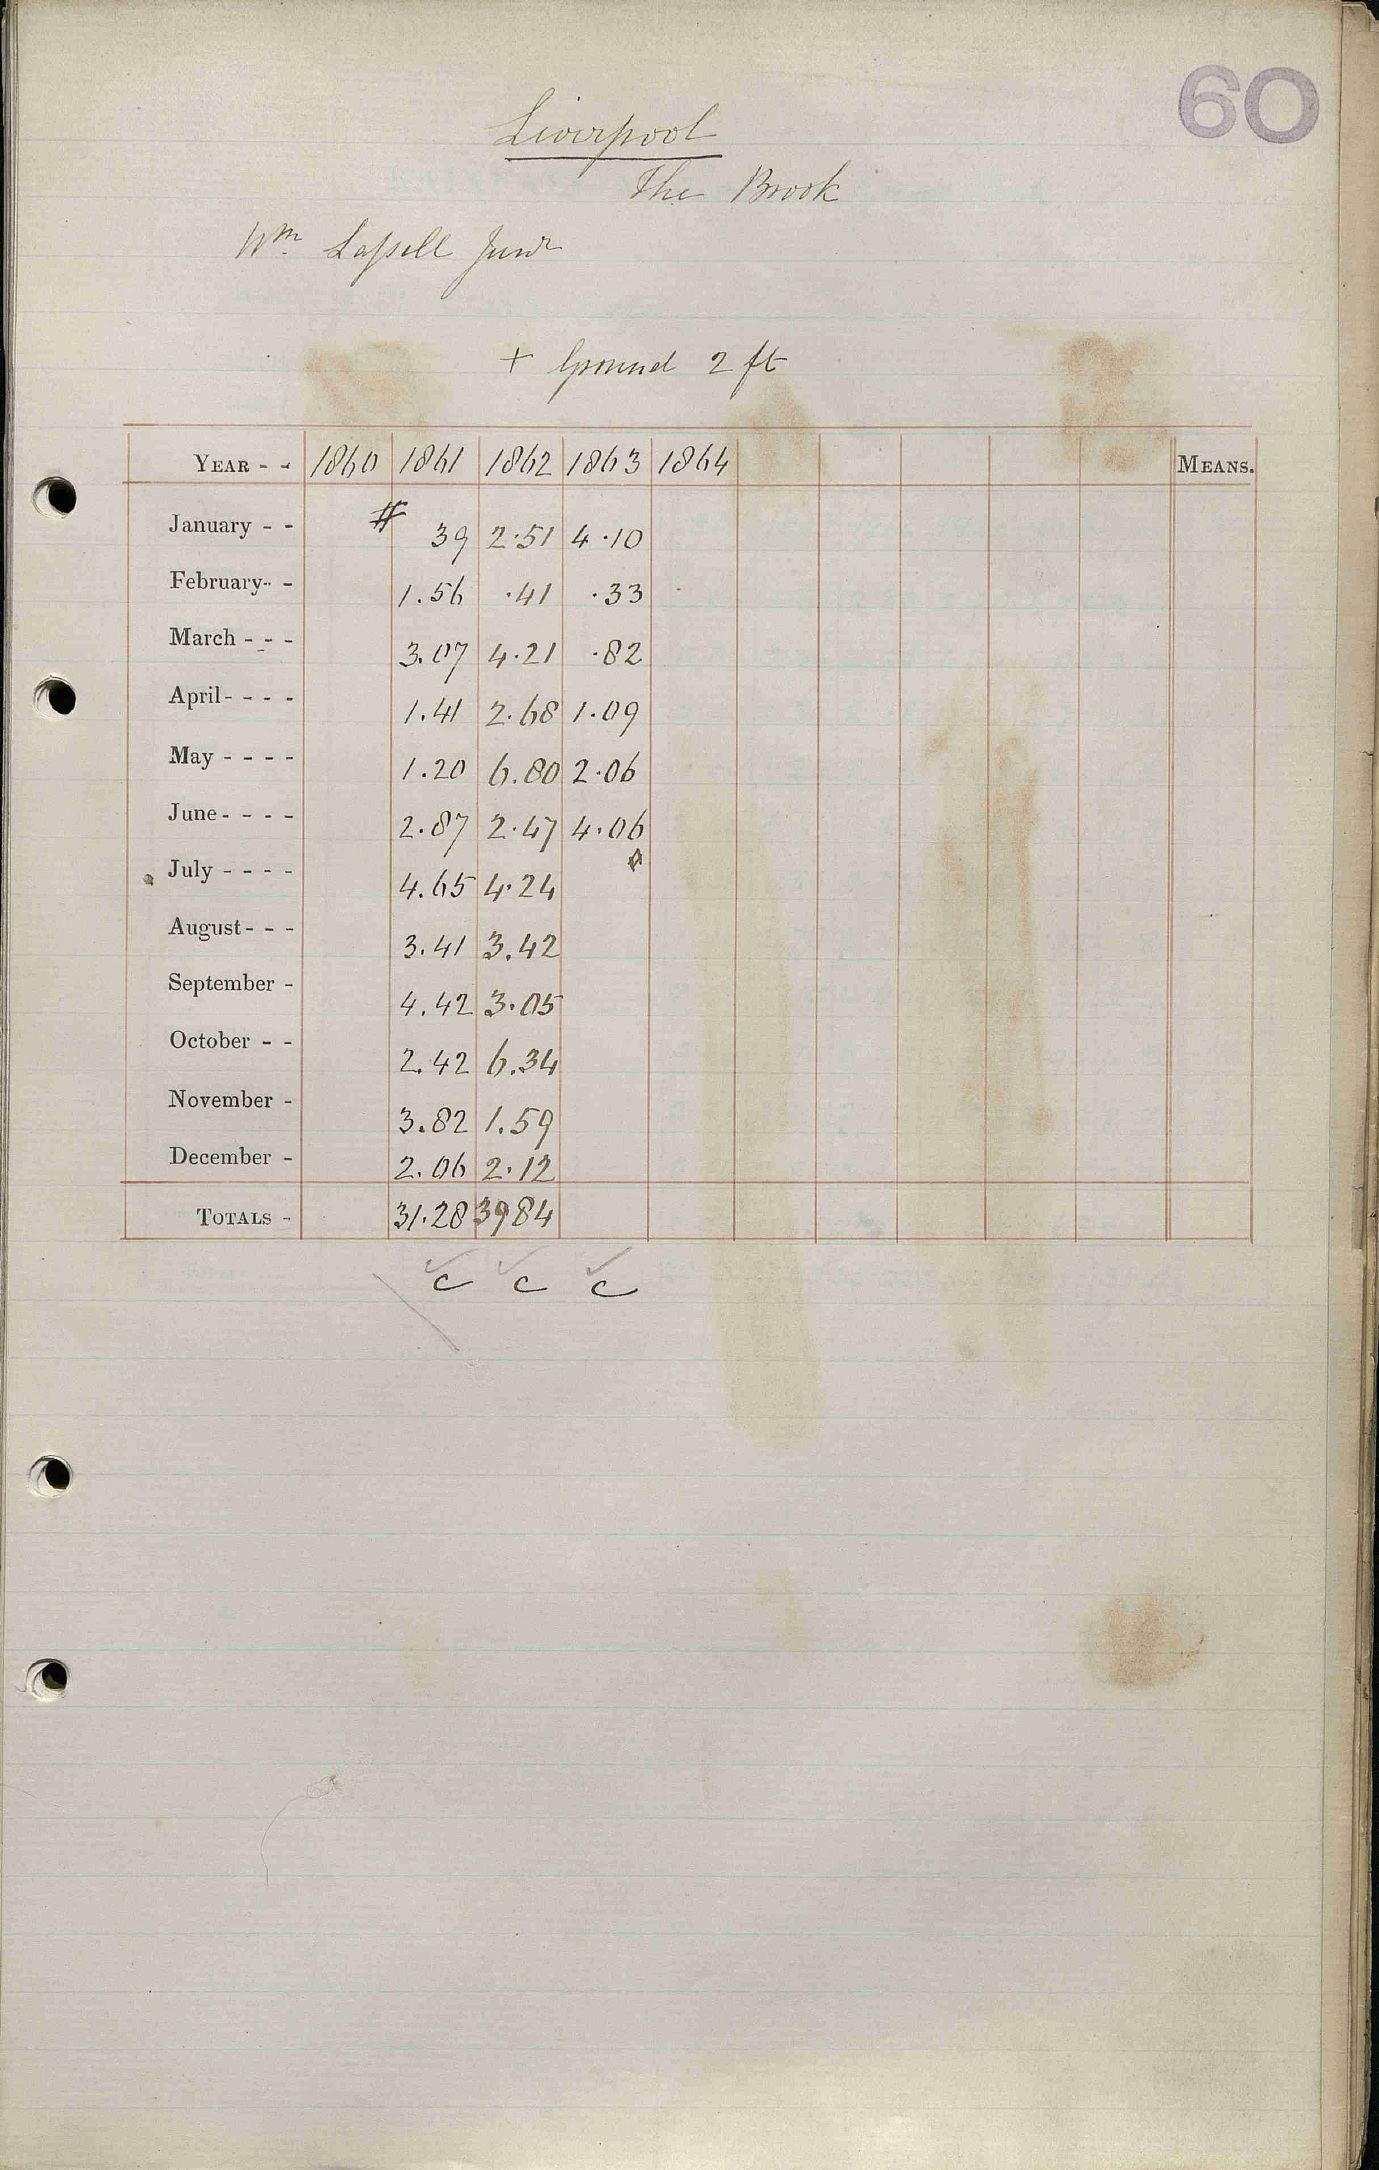 60
Liverpool
The Brook
Wm Lassell Junr
+ Ground 2 ft
YEAR - - 1860 1861 1862 1863 1864 MEANS.
January - - # 39 2.51 4.10
February - - 1.56 .41 .33
March - - - 3.07 4.21 .82
April - - - - 1.41 2.68 1.09
May - - - - 1.20 6.80 2.06
June - - - - 2.87 2.47 4.06
July - - - - 4.65 4.24
August - - - 3.41 3.42
September - 4.42 3.05
October - - 2.42 6.34
November - 3.82 1.59
December - 2.06 2.12
TOTALS - 31.28 39.84
c c c